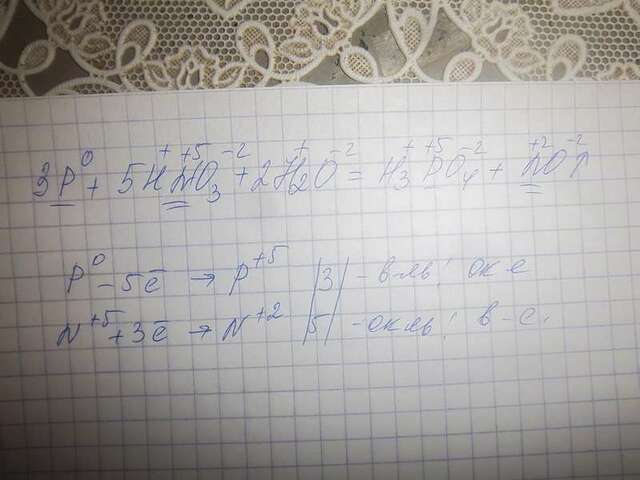 3P⁰ + 5H⁺N⁺⁵O₃⁻² + 2H₂⁺O⁻² = H₃⁺P⁺⁵O₄⁻² + N⁺²O⁻²↑
P⁰ - 5ē → P⁺⁵ |3| - в-ль! ок-е
N⁺⁵ + 3ē → N⁺² |5| - ок-ль! в-е.